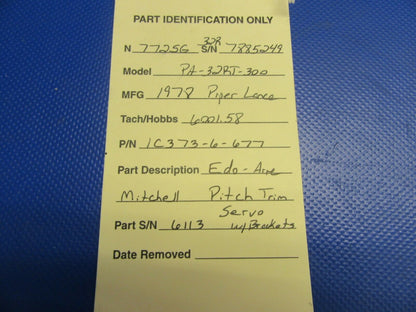 PART IDENTIFICATION ONLY
N 7725G S/N 32R 7885249
Model PA-32RT-300
MFG 1978 Piper Lance
Tach/Hobbs 6001.58
P/N 1C373-6-677
Part Description Edo-Aire
Mitchell Pitch Trim
Servo
Part S/N 6113 w/Brackets
Date Removed